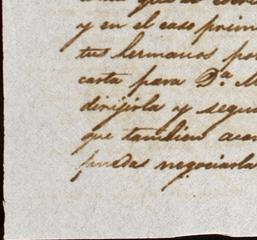 y en el caso
tus hermanos por
carta para D.ª M
dirijirla y segu
que tambien acom
puedas negociarla